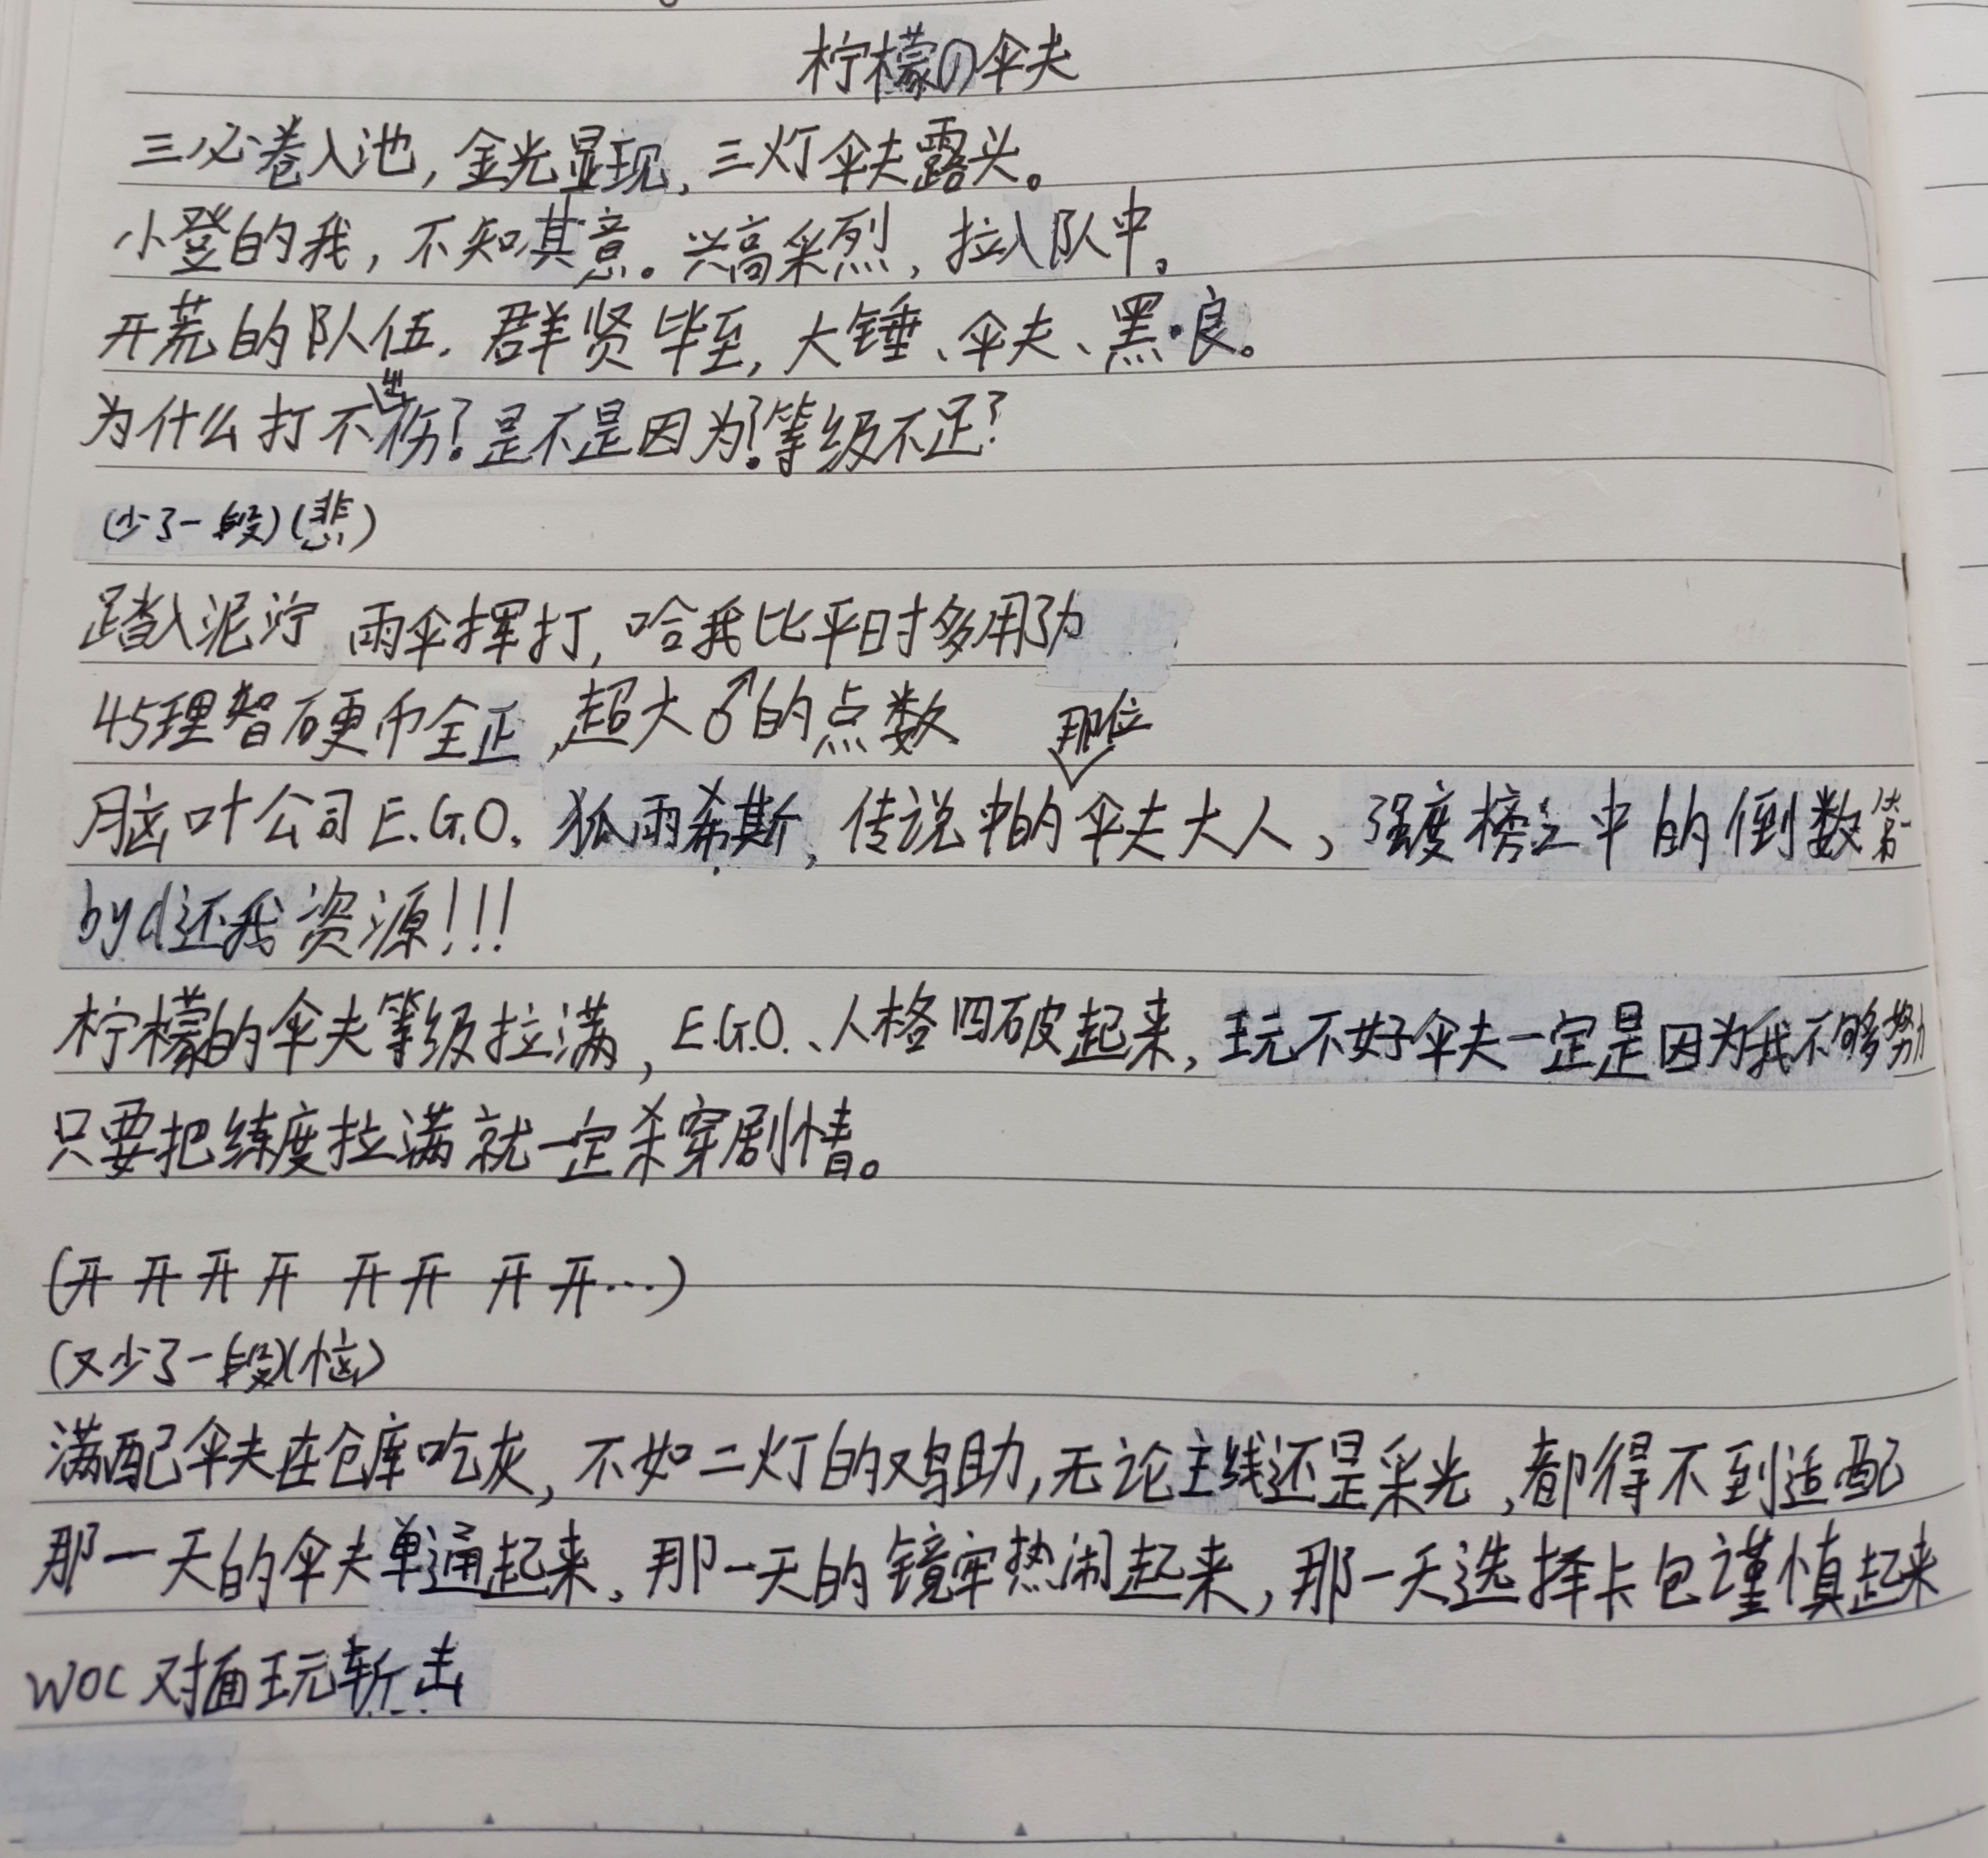 柠檬の伞夫
三必卷入池,金光显现,三灯伞夫露头。
小登的我,不知其意。兴高采烈,拉入队中。
开荒的队伍.群贤毕至,大锤、伞夫、黑·良。
为什么打不出伤?是不是因为?等级不足?
(少了一段)(悲)
踏入泥泞 雨伞挥打,哈我比平时多用力
45理智硬币全正,超大♂的点数
脑叶公司E.G.O.狐雨希斯,传说中的那位伞夫大人,强度榜之中的倒数第一
byd还我资源!!!
柠檬的伞夫等级拉满,E.G.O.、人格四破起来,玩不好伞夫一定是因为我不够努力
只要把练度拉满就一定杀穿剧情。
(开开开开 开开 开开…)
(又少了一段)(恼)
满配伞夫在仓库吃灰,不如二灯的鸡助,无论主线还是采光,都得不到适配
那一天的伞夫单通起来,那一天的镜牢热闹起来,那一天选择卡包谨慎起来
woc对面玩斩击